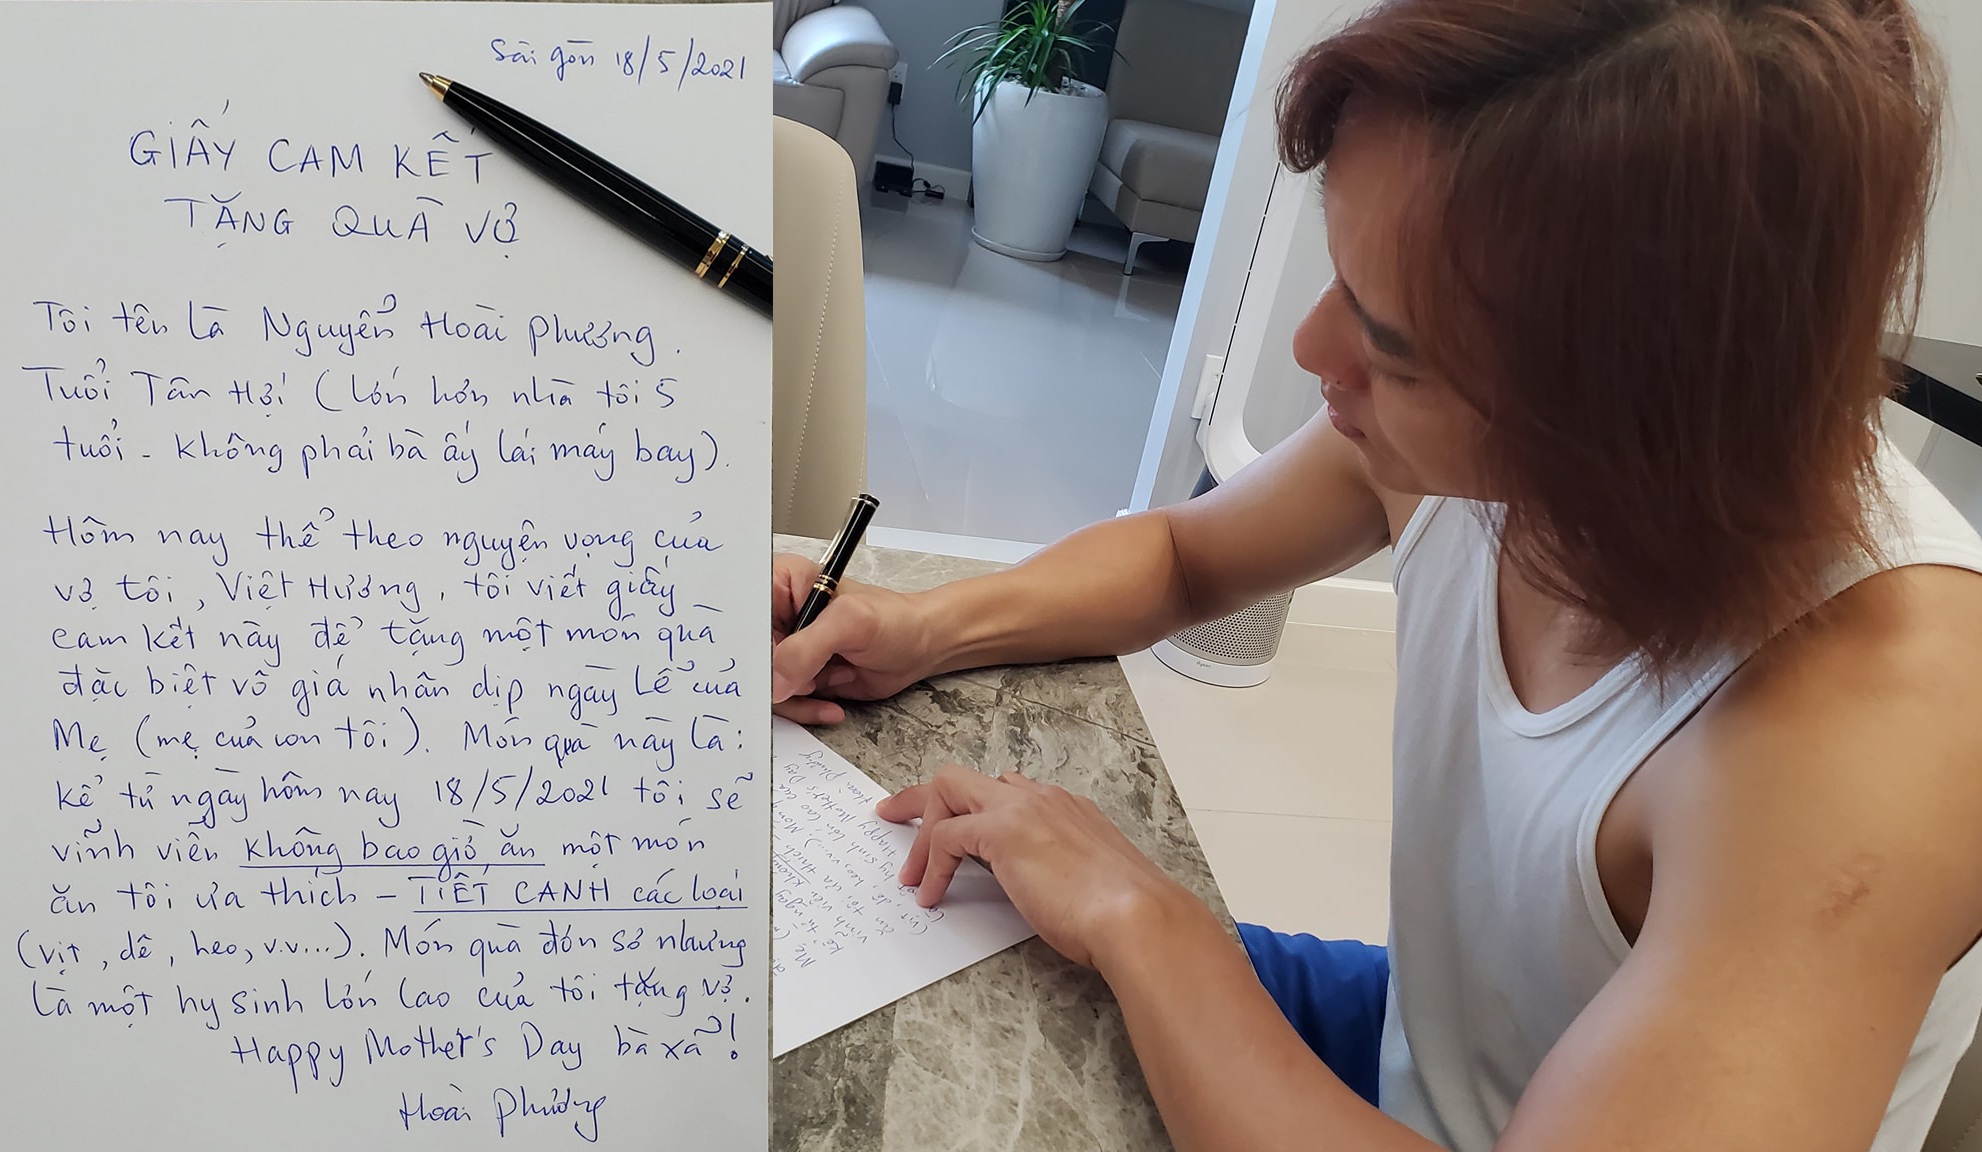 Sài gòn 18/5/2021
GIẤY CAM KẾT
TẶNG QUÀ VỢ
Tôi tên là Nguyễn Hoài Phương.
Tuổi Tân Hợi (lớn hơn nhà tôi 5
tuổi - không phải bà ấy lái máy bay).
Hôm nay thể theo nguyện vọng của
vợ tôi, Việt Hương, tôi viết giấy
cam kết này để tặng một món quà
đặc biệt vô giá nhân dịp ngày Lễ của
Mẹ (mẹ của con tôi). Món quà này là:
kể từ ngày hôm nay 18/5/2021 tôi sẽ
vĩnh viễn không bao giờ ăn một món
ăn tôi ưa thích - TIẾT CANH các loại
(vịt, dê, heo, v.v...). Món quà đơn sơ nhưng
là một hy sinh lớn lao của tôi tặng vợ.
Happy Mother's Day bà xã!
Hoài Phương
dyson